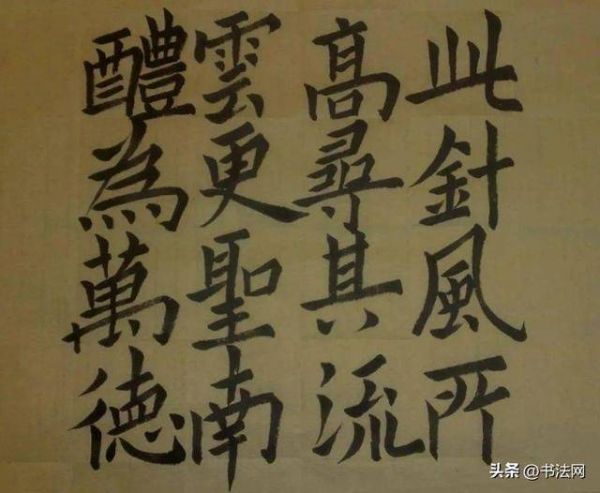 此針風所
高尋其流
雲更聖南
醴為萬德
头条 @书法网